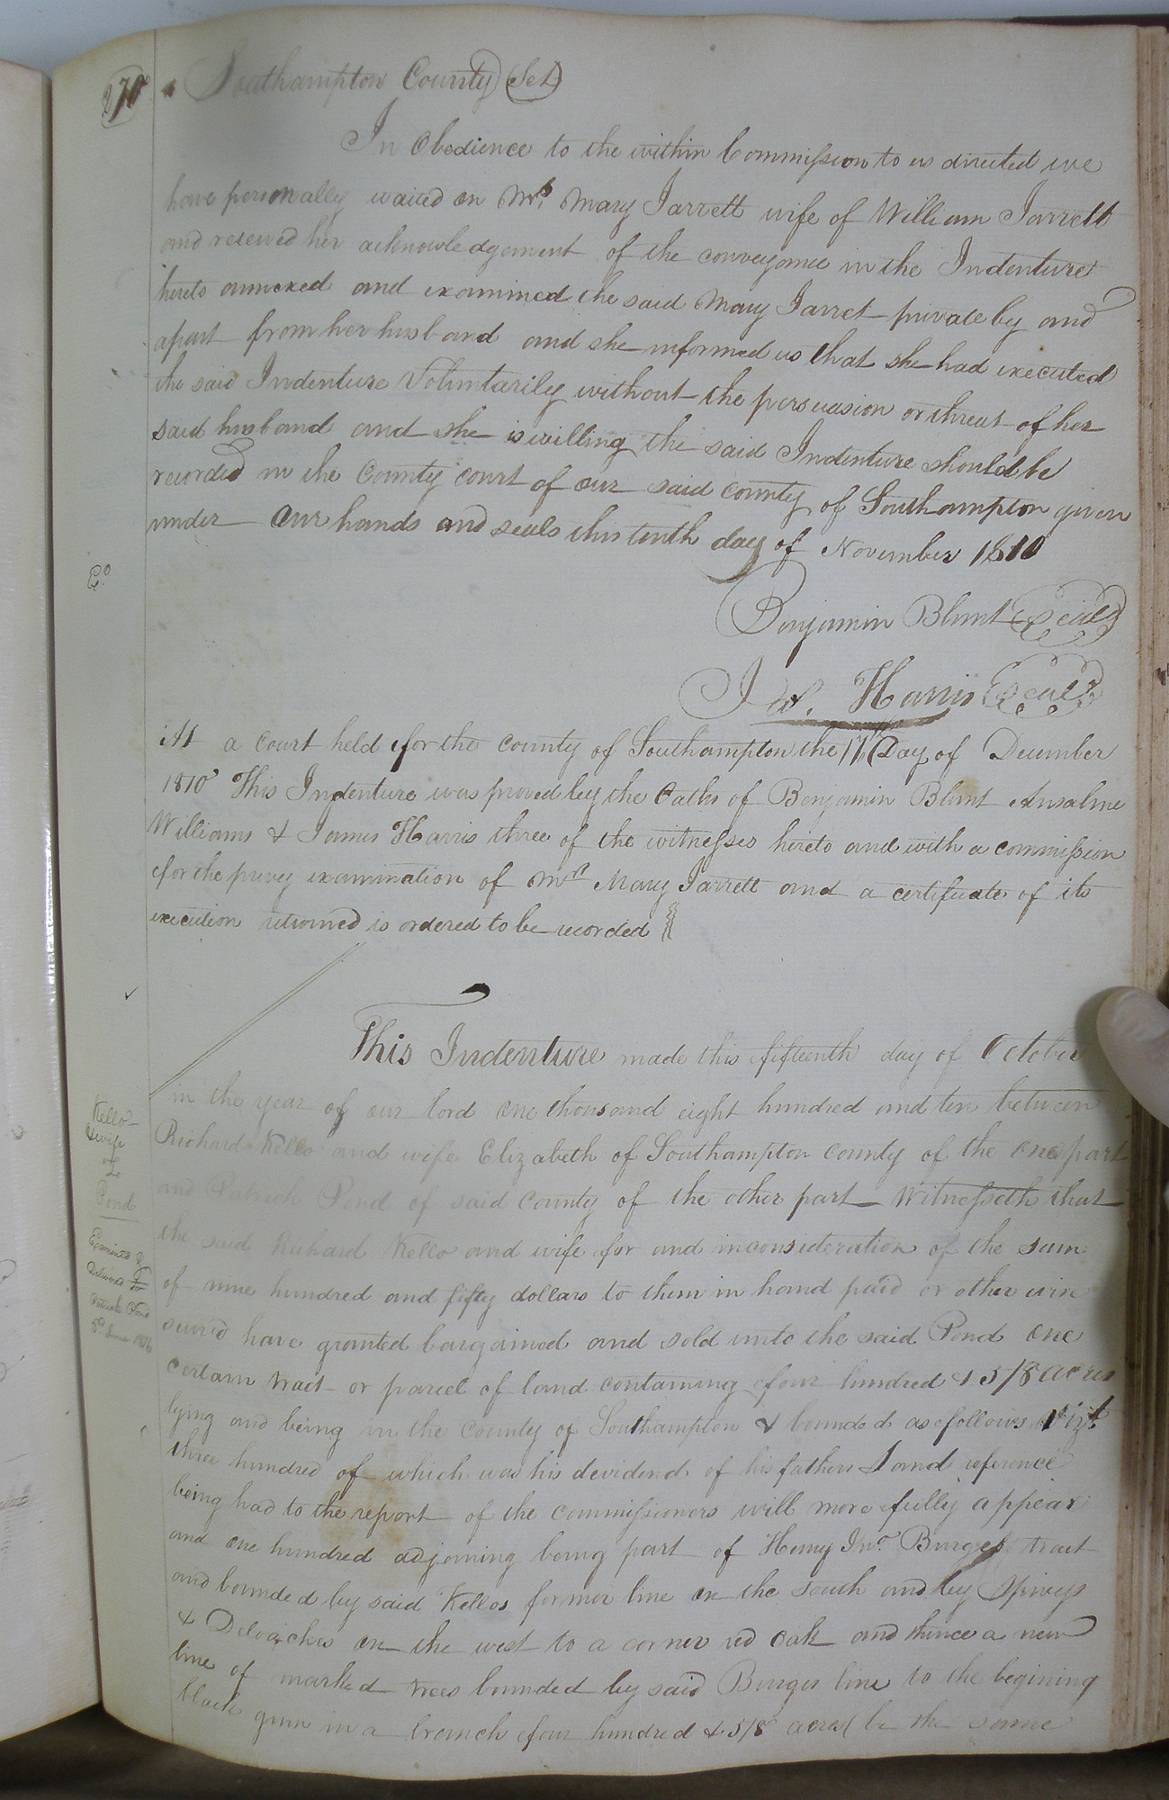 270
Southampton County (Sct)
In Obedience to the within Commission to us directed we
have personally waited on Mrs. Mary Jarrett wife of William Jarrett
and received her acknowledgement of the conveyance in the Indenture
hereto annexed and examined the said Mary Jarret privately and
apart from her husband and she informed us that she had executed
the said Indenture Voluntarily without the persuasion or threat of her
said husband and she is willing the said Indenture should be
recorded in the County court of our said county of Southampton given
under our hands and seals this tenth day of November 1810
Ex.
Benjamin Blunt (Seal)
Jas. Harris (Seal)
At a court held for the county of Southampton the 17th Day of December
1810 This Indenture was proved by the Oaths of Benjamin Blunt Ansalme
Williams & James Harris three of the witnesses hereto and with a commission
for the privey examination of Mrs Mary Jarrett and a certificate of its
execution returned is ordered to be recorded
This Indenture made this fifteenth day of October
in the year of our lord one thousand eight hundred and ten between
Richard Kello and wife Elizabeth of Southampton county of the one part
and Patrick Pond of said county of the other part Witnesseth that
the said Richard Kello and wife for and inconsideration of the sum
of nine hundred and fifty dollars to them in hand paid or other wise
secur'd have granted bargained and sold unto the said Pond one
certain tract or parcel of land containing four hundred & 5/8 acres
lying and being in the county of Southampton & bounded as follows Vizt
three hundred of which was his devidend of his fathers Land reference
being had to the report of the commissioners will more fully appear
and one hundred adjoining being part of Henry Jno. Burges tract
and bounded by said Kellos former line on the south and by Spiveys
& Deloaches on the west to a corner red Oak and thence a new
line of marked trees bounded by said Burges line to the begining
black gum in a branch four hundred & 5/8 acres (be the same
Kello
& wife
to
Pond
Examined &
Delivered to
Patrick Pond